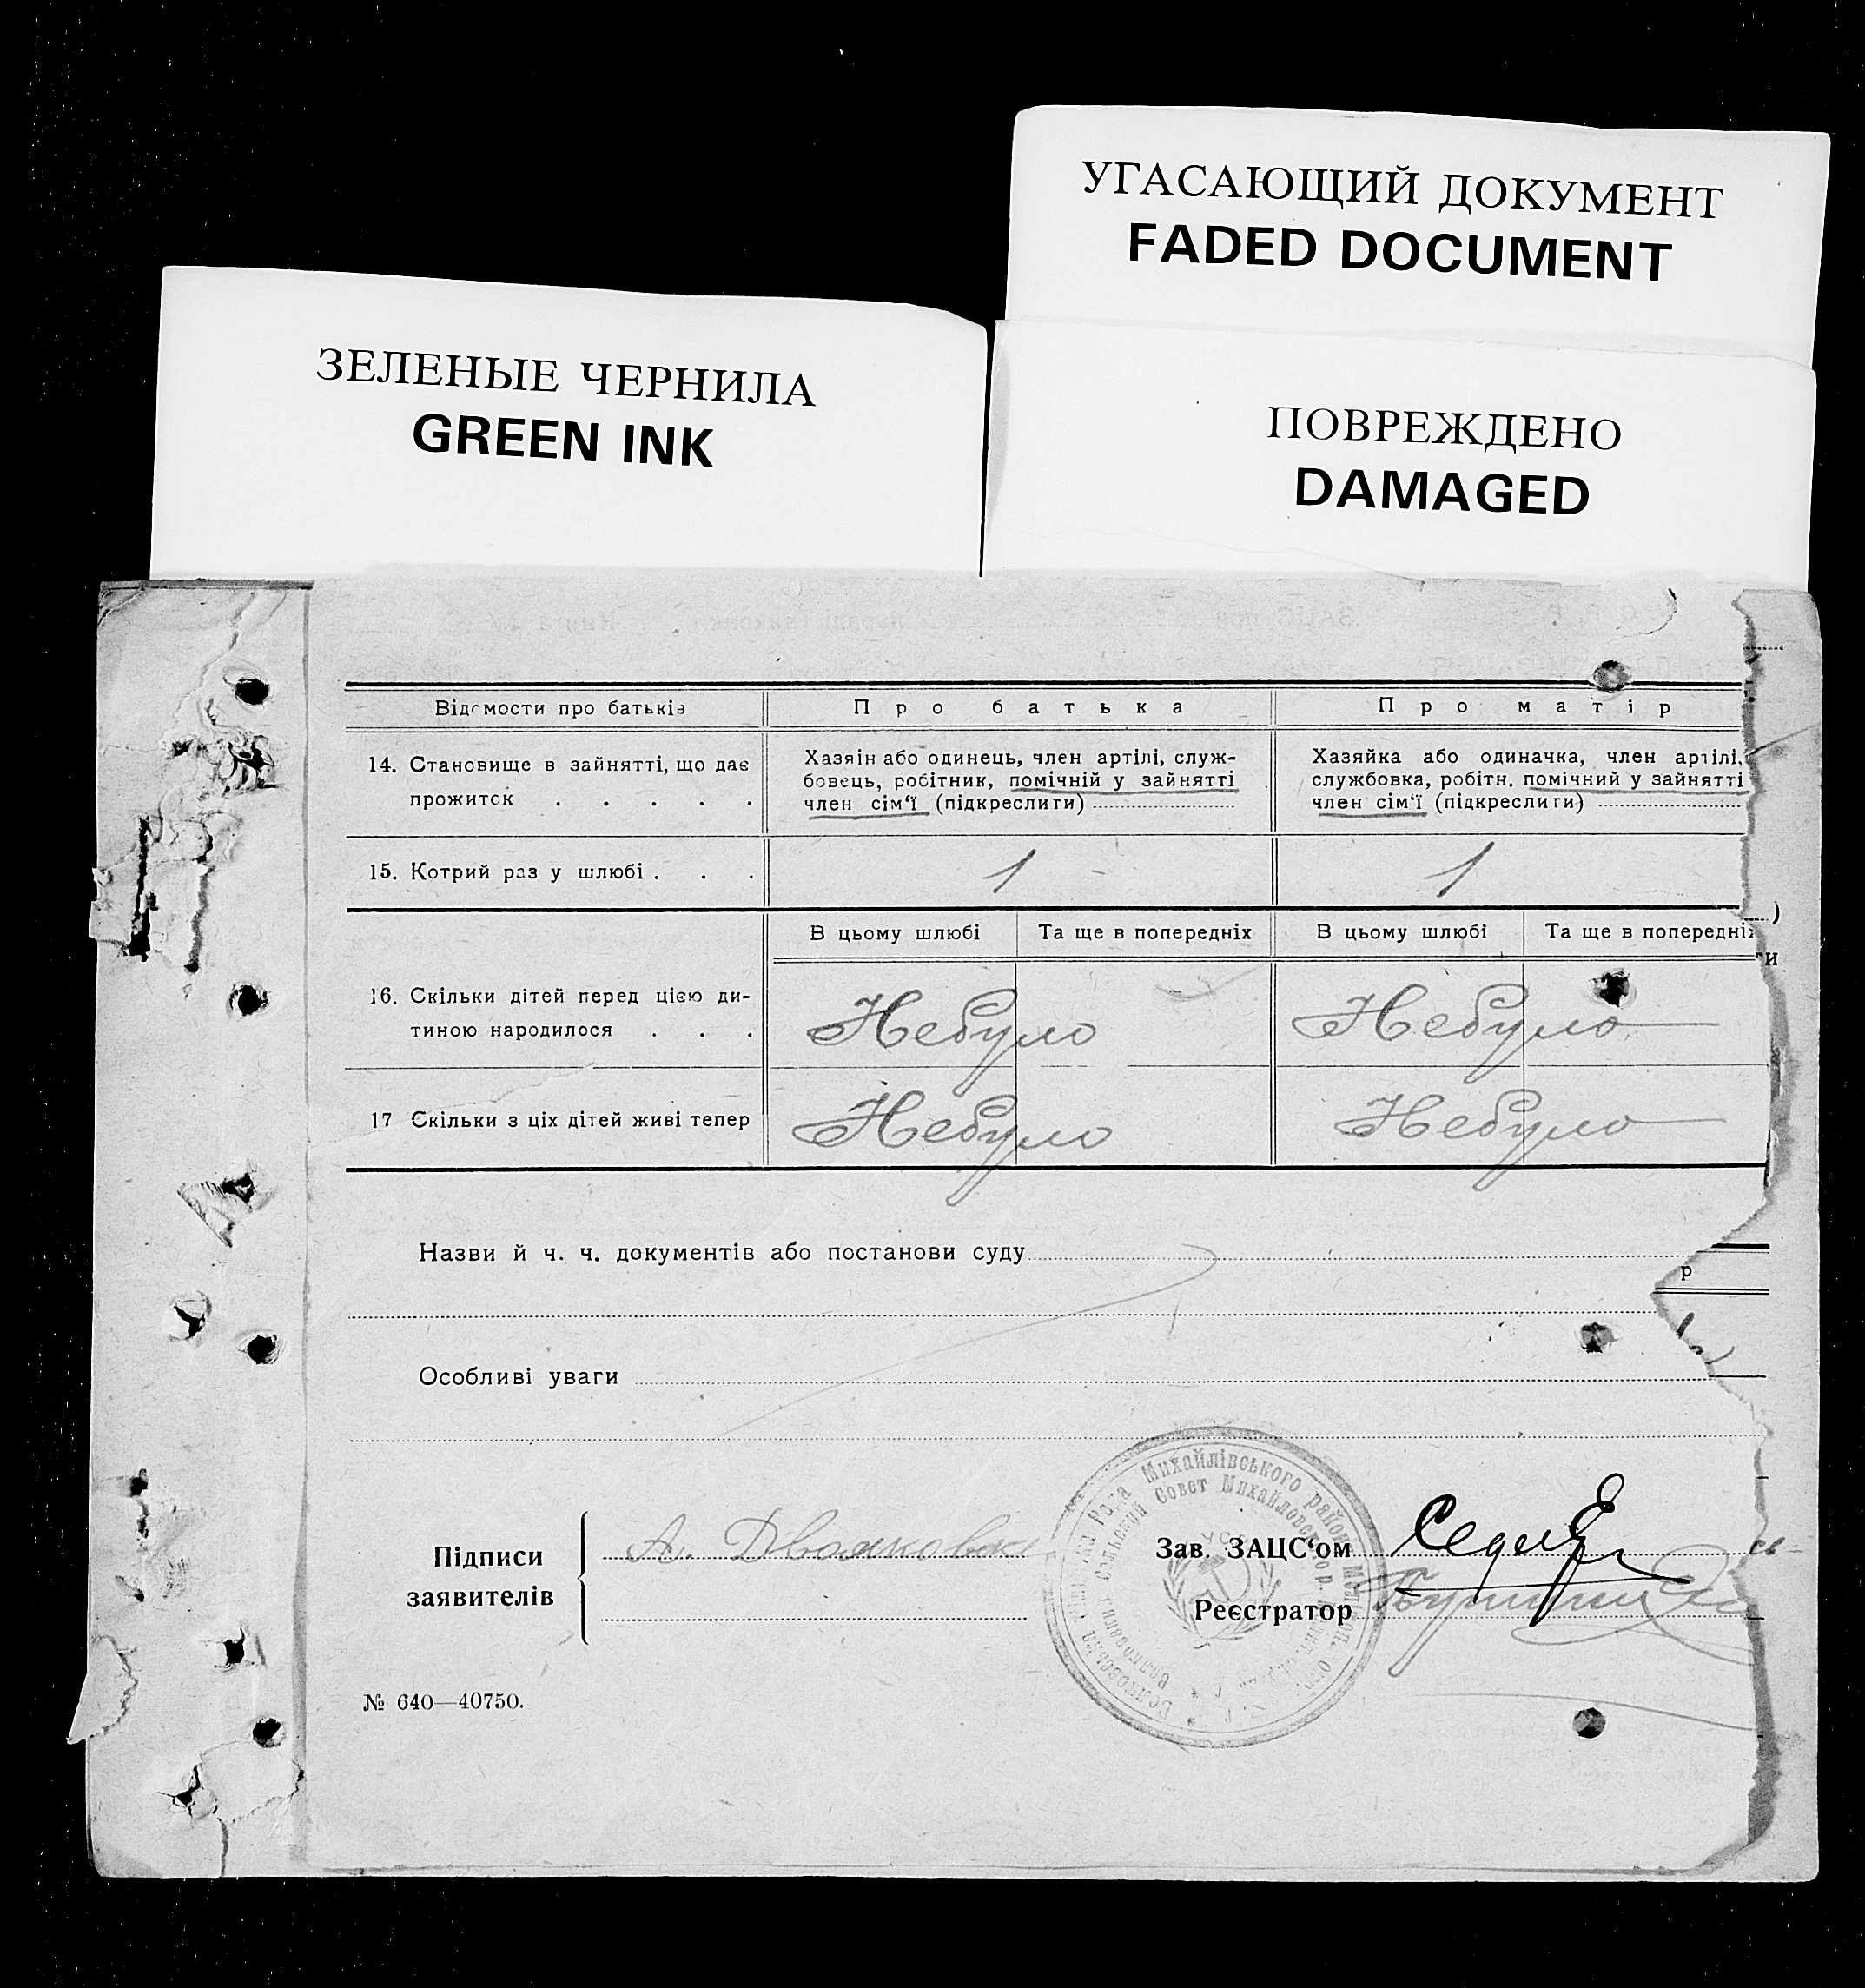 УГАСАЮЩИЙ ДОКУМЕНТ
FADED DOCUMENT
ЗЕЛЕНЫЕ ЧЕРНИЛА
GREEN INK
ПОВРЕЖДЕНО
DAMAGED
Відомости про батьків
Про батька
Про матір
14. Становище в зайнятті, що дає
прожиток . . . . .
Хазяін або одинець, член артілі, служ-
бовець, робітник, помічній у зайнятті
член сім‘ї (підкреслити)
Хазяйка або одиначка, член артілі,
службовка, робітн. помічний у зайнятті
член сім‘ї (підкреслити)
15. Котрий раз у шлюбі . . .
1
1
В цьому шлюбі
Та ще в попередніх
В цьому шлюбі
Та ще в попередніх
16. Скільки дітей перед цією ди-
тиною народилося . . .
Небуло
Небуло
17 Скільки з ціх дітей живі тепер
Небуло
Небуло
Назви й ч. ч. документів або постанови суду
р
Особливі уваги
Михайлівського район
Сельский Совет Михайловск
Підписи
заявителів
А.
Зав. ЗАЦС‘ом
Реєстратор
№ 640—40750.